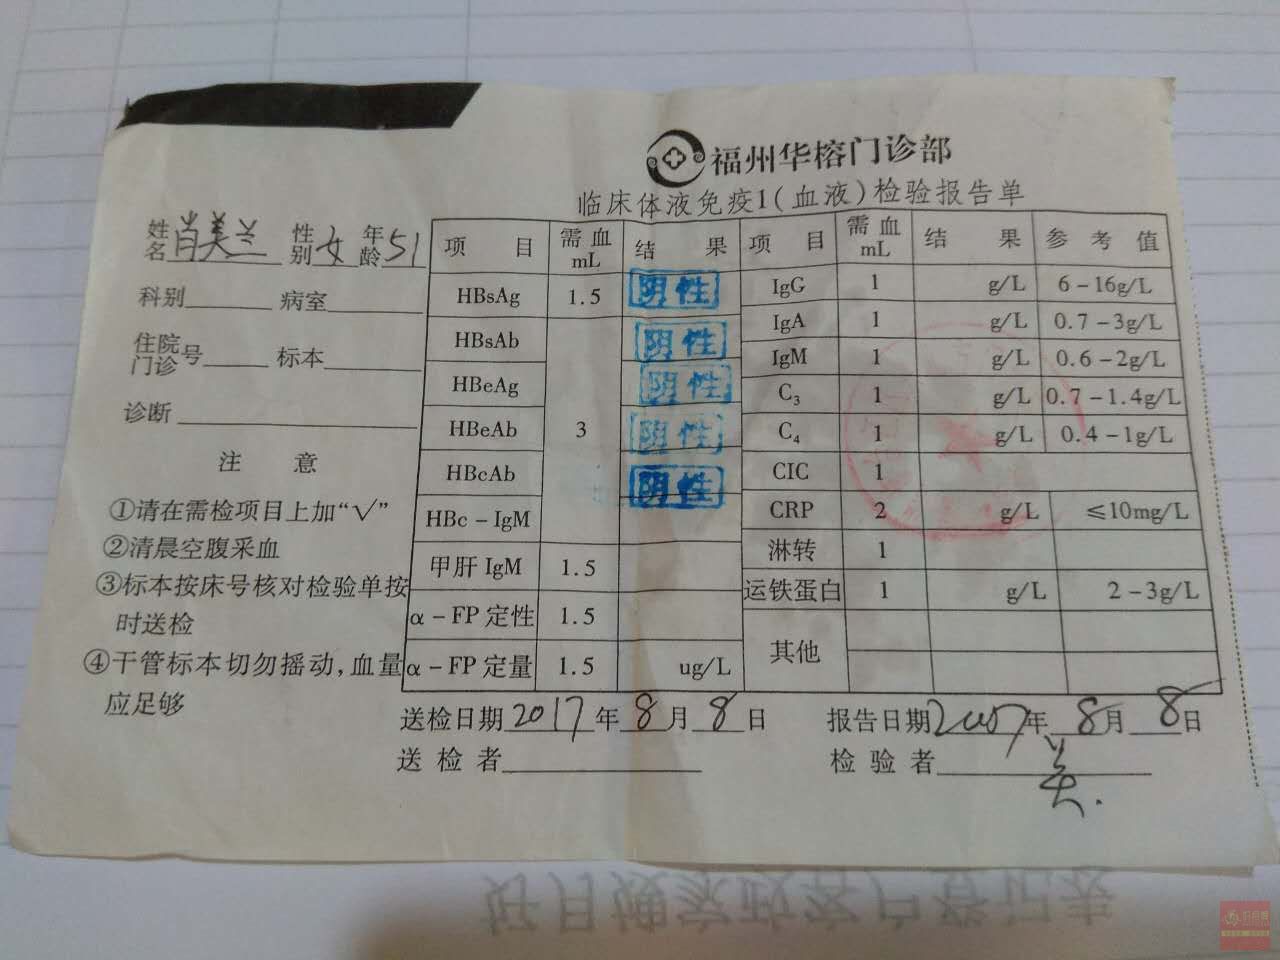 福州华榕门诊部
临床体液免疫1(血液)检验报告单
姓名 肖美兰 性别 女 年龄 51
科别 病室
住院门诊号 标本
诊断
注 意
①请在需检项目上加“√”
②清晨空腹采血
③标本按床号核对检验单按
时送检
④干管标本切勿摇动,血量
应足够
项目 需血mL 结果 项目 需血mL 结果 参考值
HBsAg 1.5 阴性 IgG 1 g/L 6-16g/L
HBsAb 阴性 IgA 1 g/L 0.7-3g/L
HBeAg 阴性 IgM 1 g/L 0.6-2g/L
HBeAb 3 阴性 C3 1 g/L 0.7-1.4g/L
HBcAb 阴性 C4 1 g/L 0.4-1g/L
HBc-IgM CIC 1
甲肝IgM 1.5 CRP 2 g/L ≤10mg/L
α-FP定性 1.5 淋转 1
α-FP定量 1.5 ug/L 运铁蛋白 1 g/L 2-3g/L
其他
送检日期 2017年8月8日 报告日期 2017年8月8日
送检者 检验者
好月嫂家政客户登记表